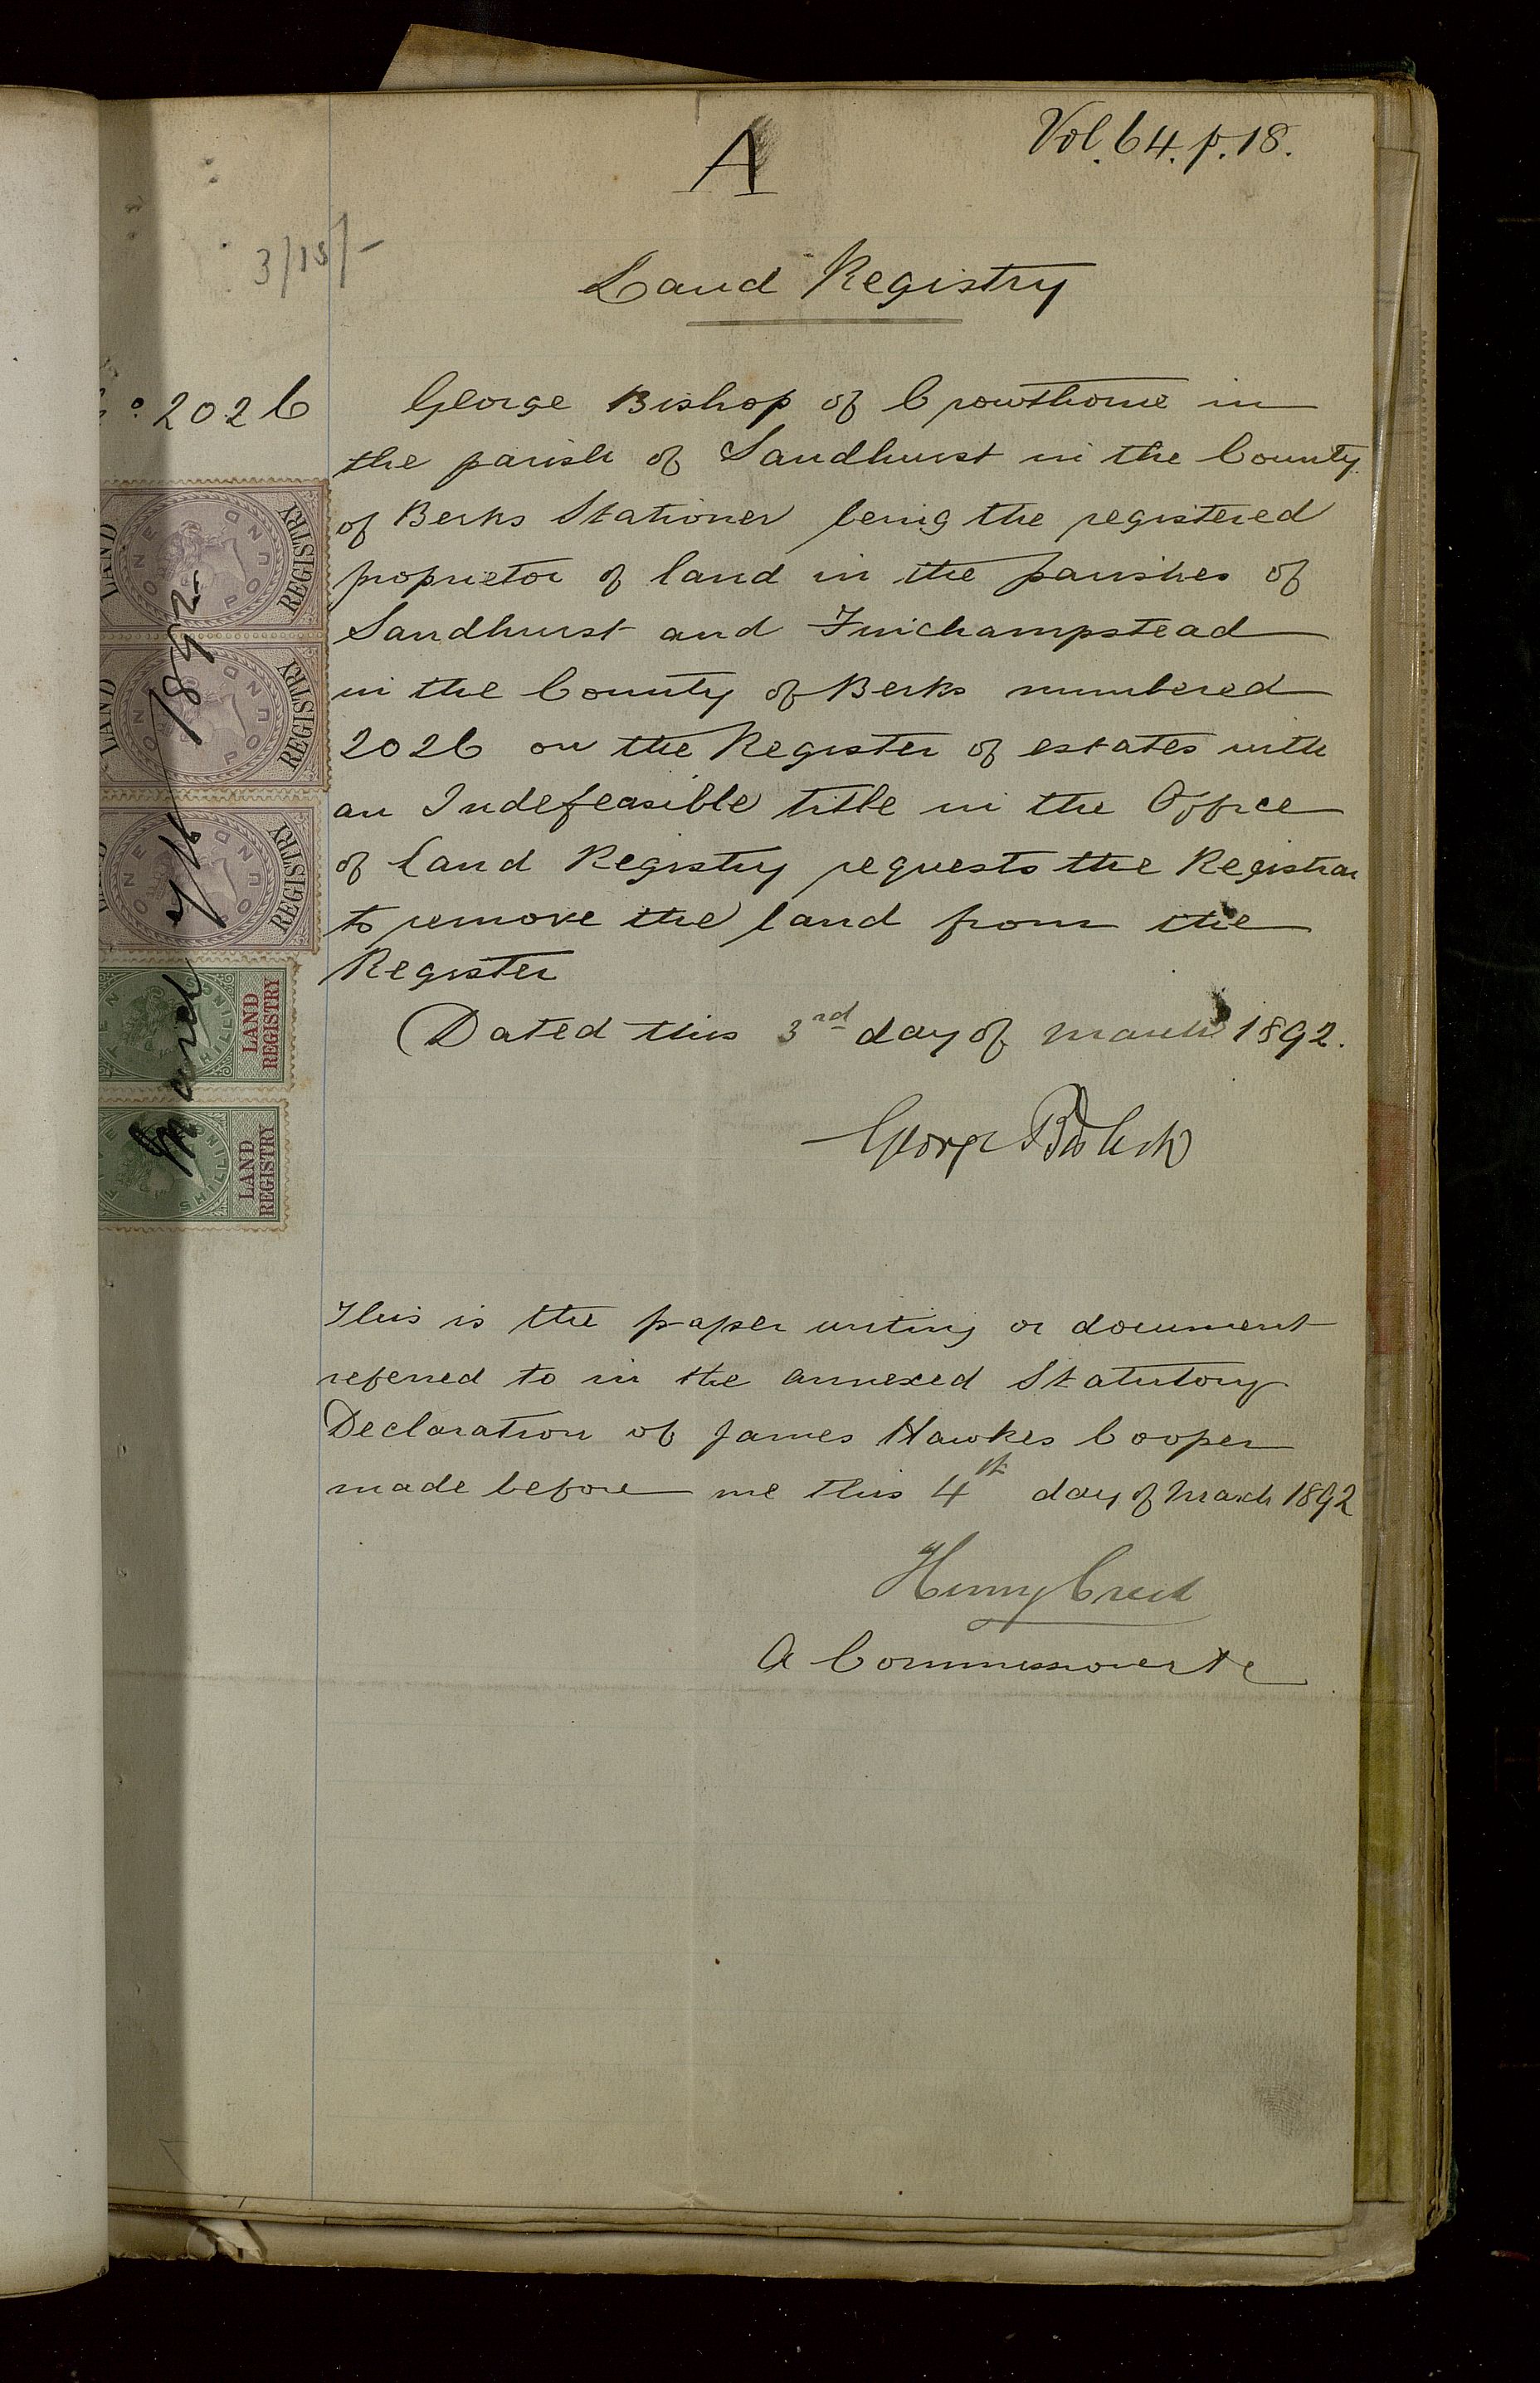 A
Vol. 64. p. 18.
3/15/-
Land Registry
No. 2026
George Bishop of Crowthorne in
the parish of Sandhurst in the County
of Berks Stationer being the registered
proprietor of land in the parishes of
Sandhurst and Finchampstead
in the County of Berks numbered
2026 on the Register of estates with
an Indefeasible title in the Office
of Land Registry requests the Registrar
to remove the land from the
Register
Dated this 3rd day of March 1892.
George Bishop
This is the paper writing or document
referred to in the annexed Statutory
Declaration of James Hawkes Cooper
made before me this 4th day of March 1892
Henry
A Commissioner &c
LAND REGISTRY
ONE POUND
LAND REGISTRY
ONE POUND
LAND REGISTRY
ONE POUND
LAND
REGISTRY
TEN SHILLIN
LAND
REGISTRY
SHILLIN
March
1892